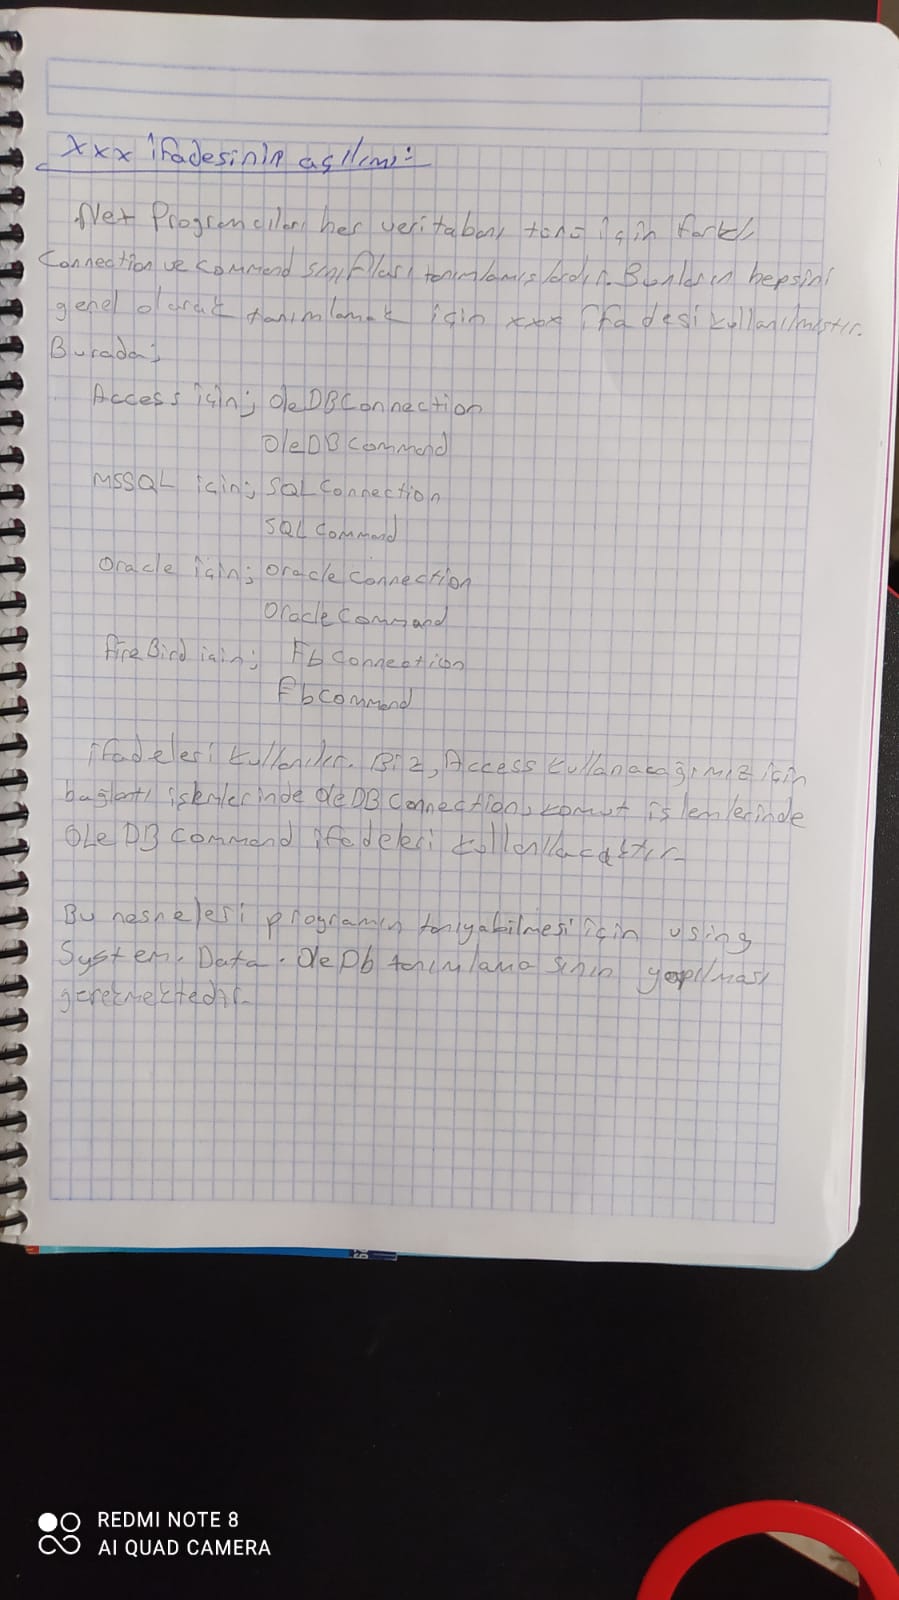 xxx ifadesinin açılımı:
.Net Programcıları her veritabanı türü için farklı
Connection ve Command sınıfları tanımlamışlardır. Bunların hepsini
genel olarak tanımlamak için xxx ifadesi kullanılmıştır.
Burada;
Access için; OleDBConnection
OleDBCommand
MSSQL için; SQLConnection
SQLCommand
Oracle için; OracleConnection
OracleCommand
FireBird için; FbConnection
FbCommand
ifadeleri kullanılır. Biz, Access kullanacağımız için
bağlantı işlemlerinde OleDBConnection, komut işlemlerinde
OLeDBCommand ifadeleri kullanılacaktır.
Bu nesneleri programın tanıyabilmesi için using
System.Data.OleDb tanımlamasının yapılması
gerekmektedir.
REDMI NOTE 8
AI QUAD CAMERA